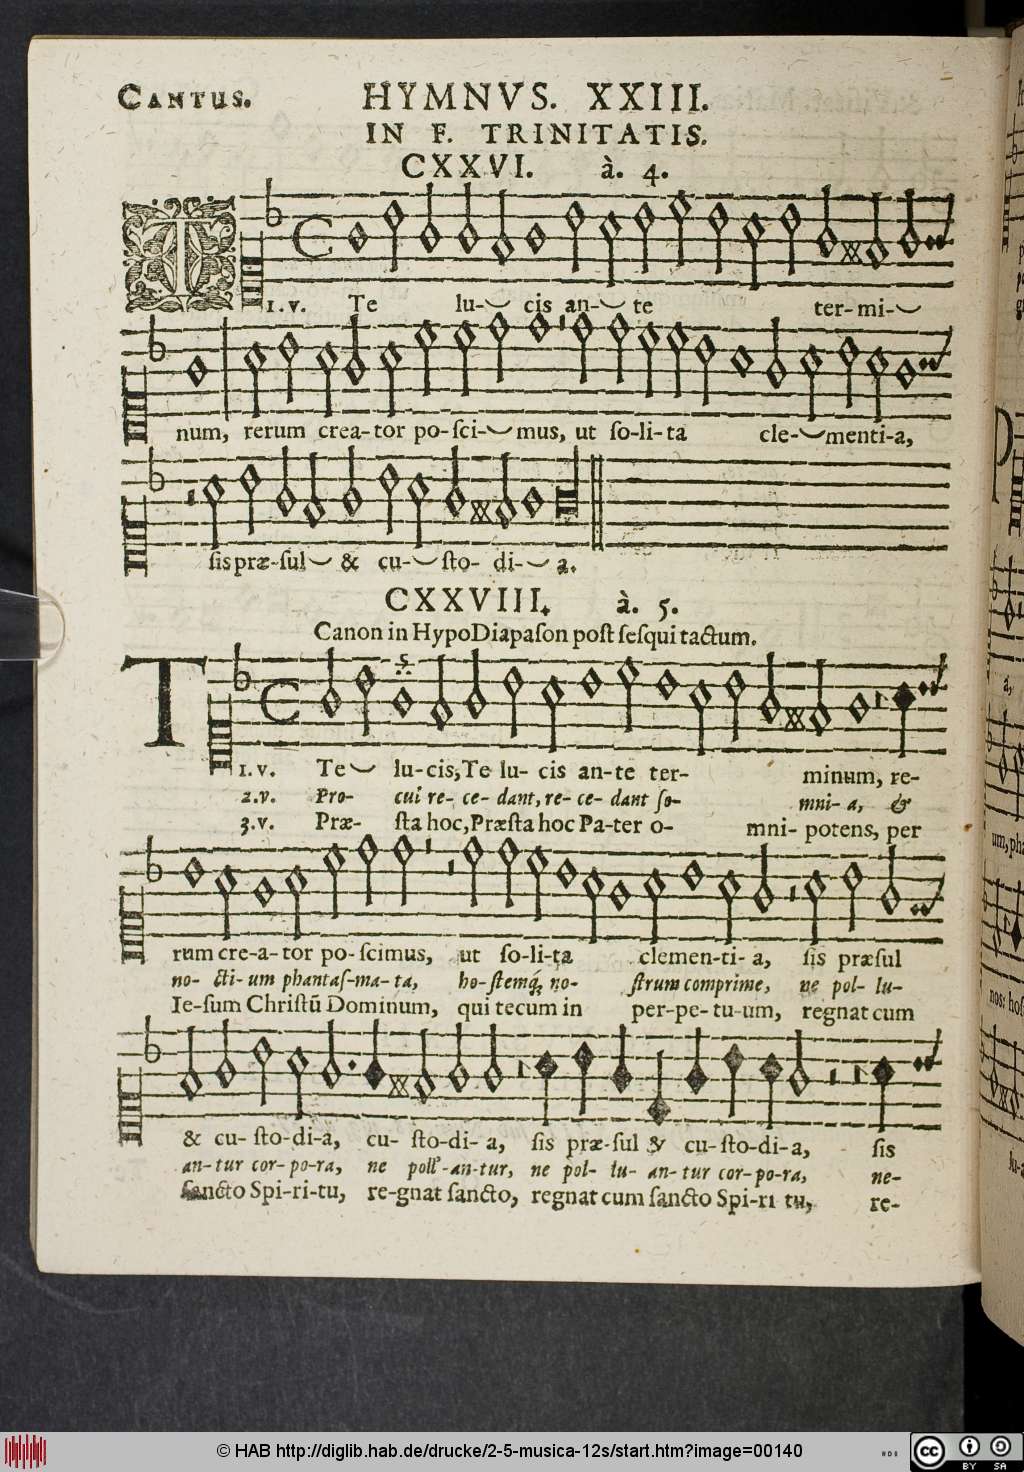 CANTUS. HYMNVS. XXIII.
IN F. TRINITATIS.
CXXVI. à. 4.
1. v. Te lu- cis an- te ter- mi-
num, rerum crea- tor po- sci- mus, ut so- li- ta cle- menti- a,
sis præ- sul & cu- sto- di- a.
CXXVIII. à. 5.
Canon in HypoDiapason post sesqui tactum.
T
1. v. Te lu- cis, Te lu- cis an- te ter- minum, re-
2. v. Pro- cul re- ce- dant, re- ce- dant so- mni- a, &
3. v. Præ- sta hoc, Præsta hoc Pa- ter o- mni- potens, per
rum cre- a- tor po- scimus, ut so- li- ta clemen- ti- a, sis præsul
no- cti- um phantas- ma- ta, ho- stemq́; no- strum comprime, ne pol- lu-
Ie- sum Christū Dominum, qui tecum in per- pe- tu- um, regnat cum
& cu- sto- di- a, cu- sto- di- a, sis præ- sul & cu- sto- di- a, sis
an- tur cor- po- ra, ne an- tur, ne pol- lu- an- tur cor- po- ra, ne-
sancto Spi- ri- tu, re- gnat sancto, regnat cum sancto Spi- ri tu, re-
© HAB http://diglib.hab.de/drucke/2-5-musica-12s/start.htm?image=00140
cc BY SA